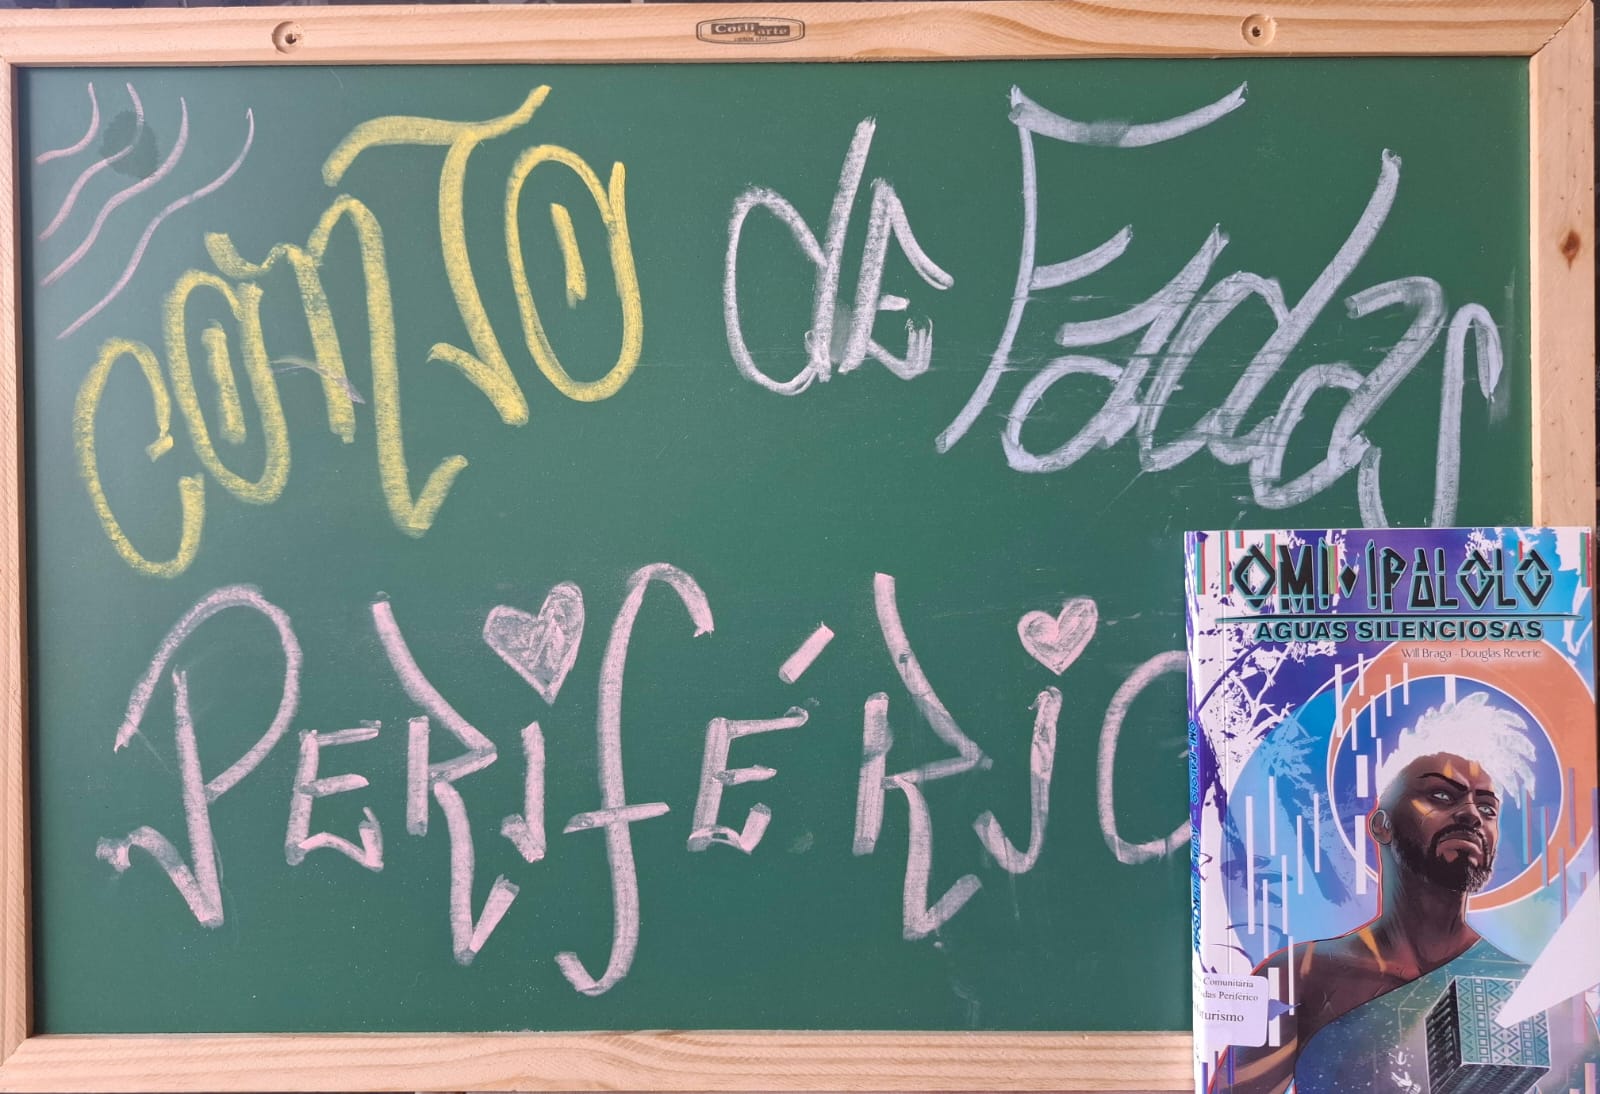 Conto de Fadas
Periféric
OMI-IPALOLO
AGUAS SILENCIOSAS
Will Braga - Douglas Reverie
OMI-IPALOLO AGUAS SILENCIOSAS
Comunitária
das Periférico
turismo